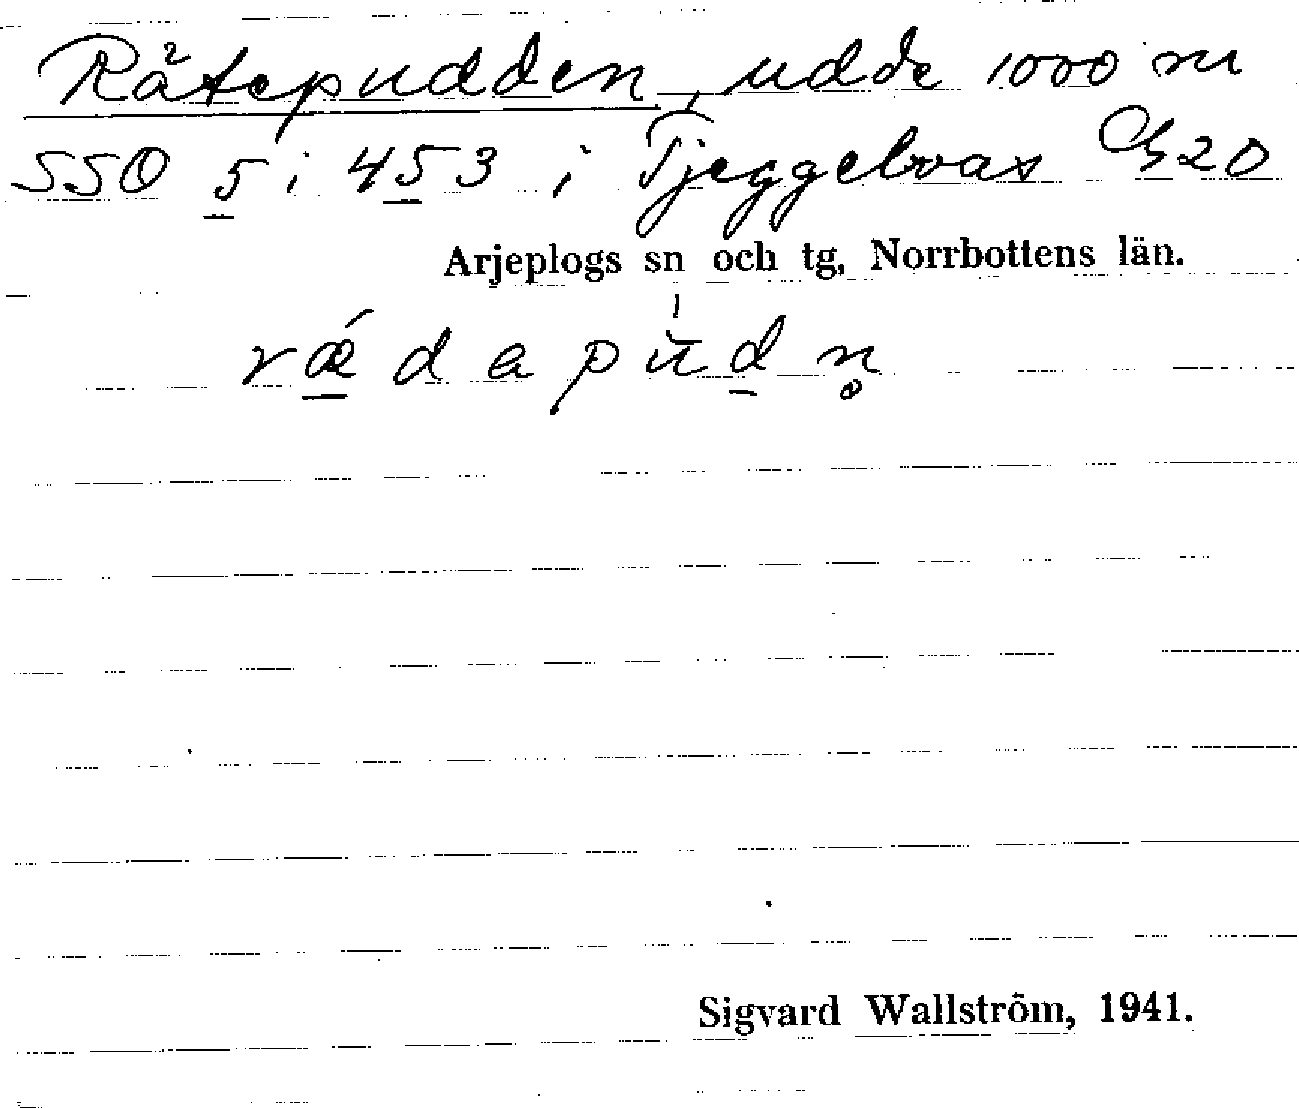 Rätepudden, udde 1000 m
SSO 5 i 453 i Tjeggelvas G20
Arjeplogs sn och tg, Norrbottens län.
rǽdapùdn̥
Sigvard Wallström, 1941.